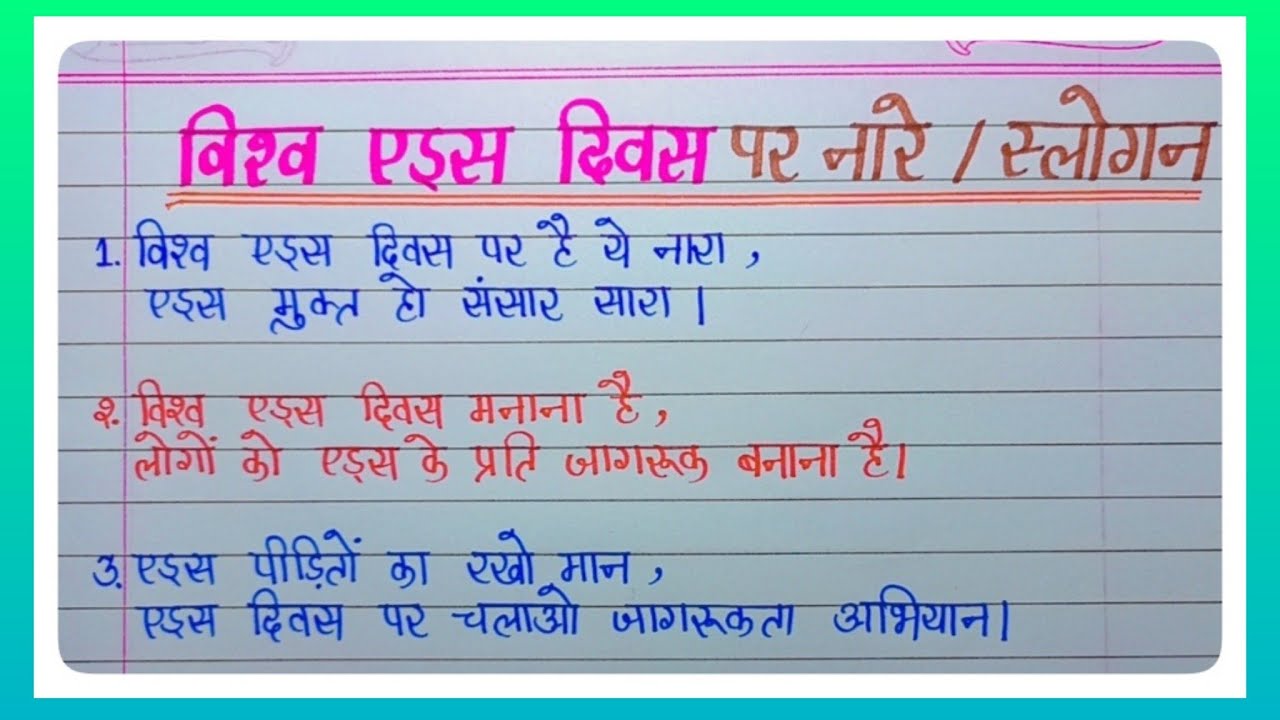 विश्व एड्स दिवस पर नारे / स्लोगन
1. विश्व एड्स दिवस पर है ये नारा ,
एड्स मुक्त हो संसार सारा ।
२. विश्व एड्स दिवस मनाना है ,
लोगों को एड्स के प्रति जागरूक बनाना है।
३. एड्स पीड़ितों का रखो मान ,
एड्स दिवस पर चलाओ जागरूकता अभियान।